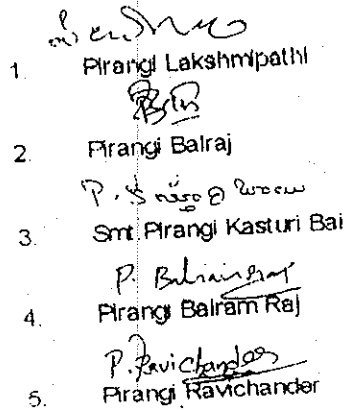 1. Pirangi Lakshmipathi
2. Pirangi Balraj
P.
3. Smt. Pirangi Kasturi Bai
P. Balram Raj
4. Pirangi Balram Raj
P. Ravichander
5. Pirangi Ravichander